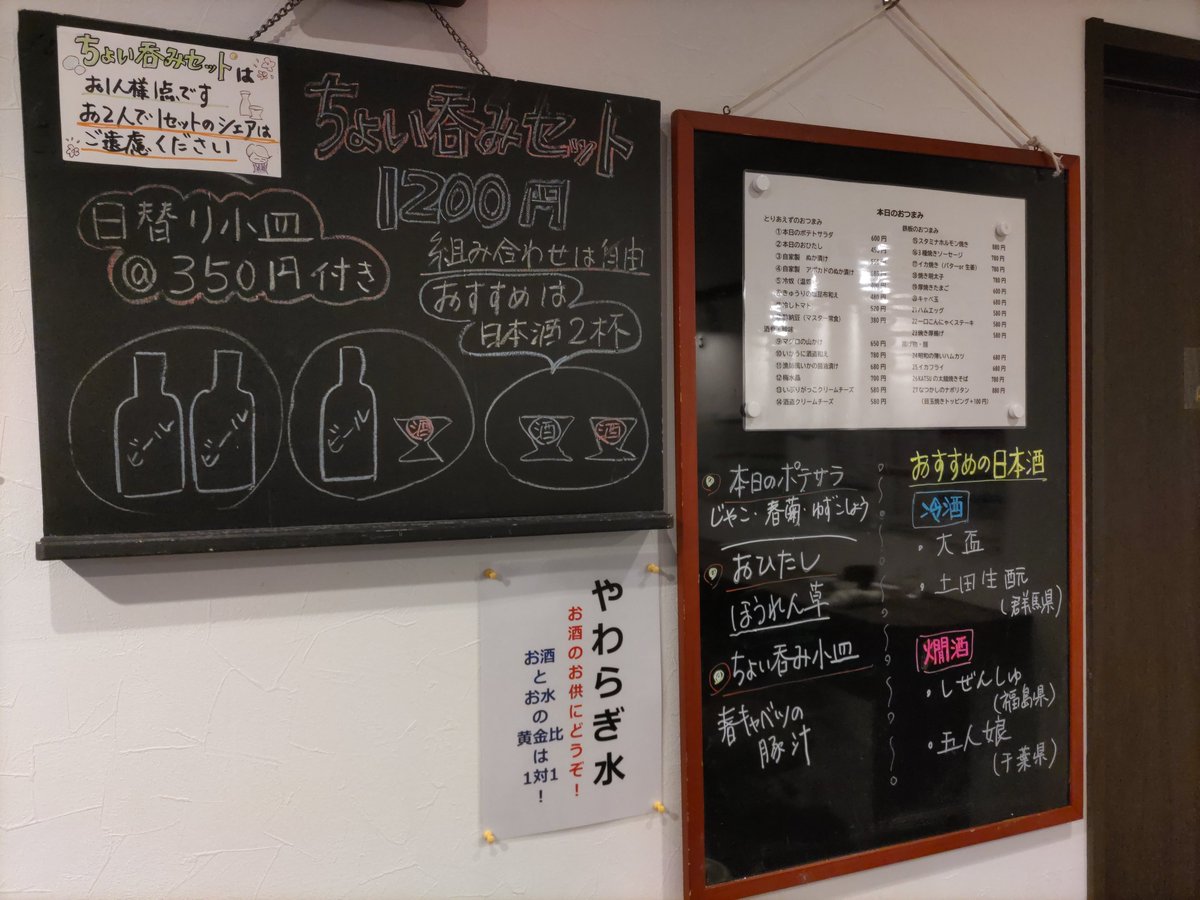 ちょい呑みセットは
お1人様1点です
お2人で1セットのシェアは
ご遠慮ください
ちょい呑みセット
1200円
日替り小皿
@350円付き
組み合わせは自由
おすすめは
日本酒2杯
ビール
ビール
ビール
酒
酒
酒
やわらぎ水
お酒のお供にどうぞ！
お酒
と
お水
の
黄金比
は
1対1！
本日のおつまみ
とりあえずのおつまみ
①本日のポテトサラダ 600円
②本日のおひたし
③自家製 ぬか漬け
④自家製 アボカドのぬか漬け
⑤冷奴
きゅうりの塩昆布和え 480円
冷しトマト 520円
納豆（マスター常食） 380円
⑨マグロの山かけ 650円
⑩いかうに酒盗和え 780円
⑪漁師風いかの醤油漬け 680円
⑫梅水晶 700円
⑬いぶりがっこクリームチーズ 580円
⑭酒盗クリームチーズ 580円
鉄板のおつまみ
⑮スタミナホルモン焼き 880円
⑯3種焼きソーセージ 780円
⑰イカ焼き（バターor生姜） 780円
⑱焼き明太子 780円
⑲厚焼きたまご 680円
⑳キャベ玉 580円
21ハムエッグ 580円
22一口こんにゃくステーキ 580円
23焼き厚揚げ 580円
揚げ物・麺
24昭和の薄いハムカツ 680円
25イカフライ 680円
26KATSUの太麺焼きそば 780円
27なつかしのナポリタン 880円
（目玉焼きトッピング+100円）
本日のポテサラ
じゃこ・春菊・ゆずこしょう
おひたし
ほうれん草
ちょい呑み小皿
春キャベツの
豚汁
おすすめの日本酒
冷酒
・大盃
・土田生酛
（群馬県）
燗酒
・しぜんしゅ
（福島県）
・五人娘
（千葉県）